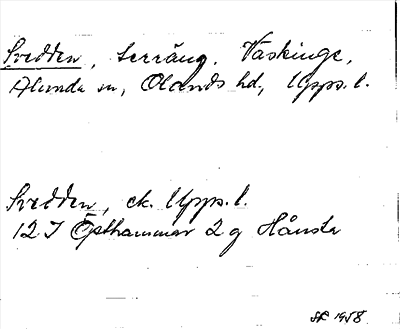 Svedden, terräng. Vaskinge,
Alunda sn, Olands hd, Upps. l.
Svedden, ek. Upps. l.
12 I Östhammar 2 g Hånsta
SK 1958